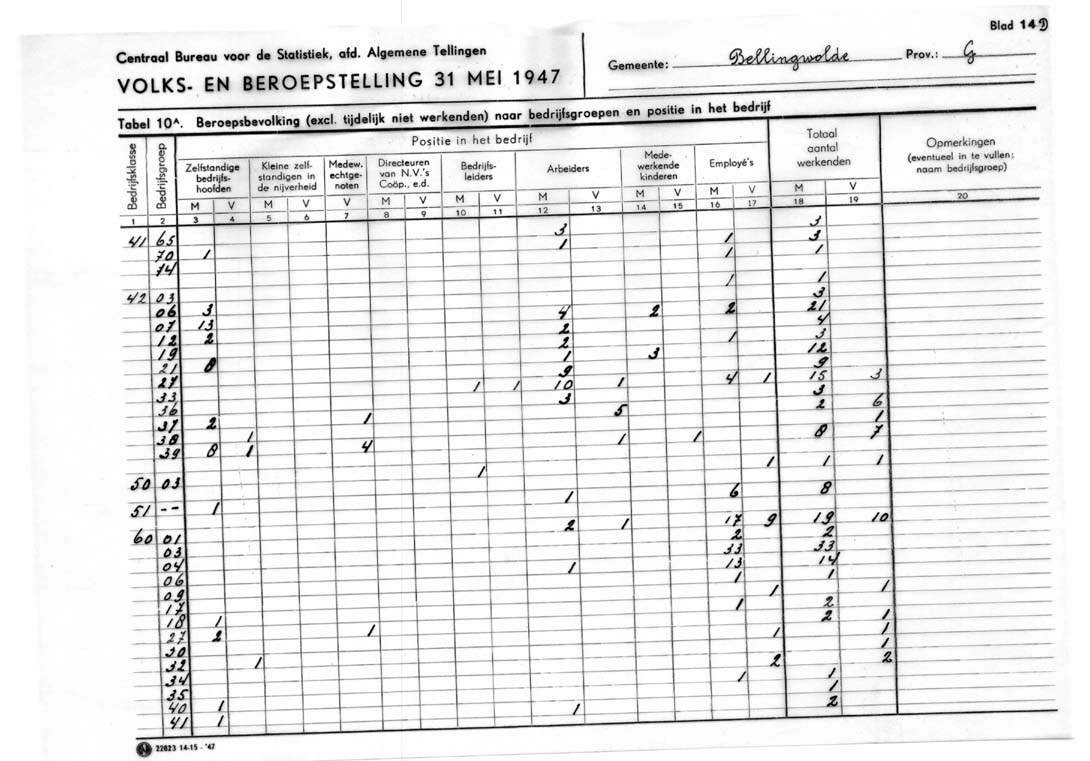 Blad 14D
Centraal Bureau voor de Statistiek, afd. Algemene Tellingen
VOLKS- EN BEROEPSTELLING 31 MEI 1947
Gemeente: Bellingwolde Prov.: G
Tabel 10A. Beroepsbevolking (excl. tijdelijk niet werkenden) naar bedrijfsgroepen en positie in het bedrijf
Bedrijfsklasse Bedrijfsgroep Positie in het bedrijf Totaal aantal werkenden Opmerkingen (eventueel in te vullen; naam bedrijfsgroep)
Zelfstandige bedrijfs-hoofden Kleine zelf-standigen in de nijverheid Medew. echtge-noten Directeuren van N.V.'s Coöp., e.d. Bedrijfs-leiders Arbeiders Mede-werkende kinderen Employé's
M V M V V M V M V M V M V M V M V
1 2 3 4 5 6 7 8 9 10 11 12 13 14 15 16 17 18 19 20
41 65 3 3
70 1 1 1 3
74 1 1
42 03 1 1
06 3 3
07 13 4 2 2 21
12 2 2 4
19 2 1 3
21 8 1 3 12
27 9 9
33 1 1 10 1 4 1 15 3
36 3 3
37 2 1 5 2 6
38 1 1
39 8 1 4 1 1 8 7
50 03 1 1 1 1
51 -- 1 1 6 8
60 01 2 1 17 9 19 10
03 2 2
04 33 33
06 1 13 14
09 1 1
17 1 1
18 1 1 2
27 2 1 2 1
30 1 1
32 1 1
34 2 2
35 1 1
40 1 1
41 1 1 2
22823 14-15 - '47